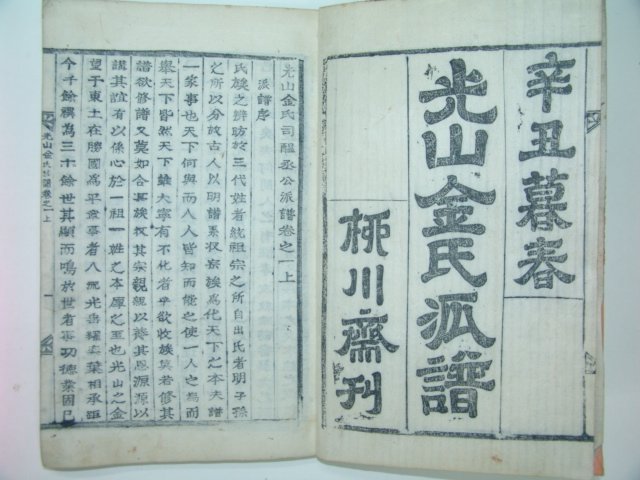 辛丑暮春
光山金氏派譜
柳川齋刊
光山金氏司醞丞公派譜卷之一上
派譜序
氏族之辨昉於三代姓者統祖宗之所自出氏者明子孫
之所以分故古人以明譜系收宗族爲化天下之本夫譜
一家事也天下何與而人人皆知而能之人人爲而
擧天下皆然天下雖大寧有不化者乎欲收族莫若修其
譜欲修譜又莫如合其族收其宗親親以萃其恩源源以
講其誼有以係心於一祖一姓之本厚之至也光山之金
望于東土在勝國爲平章事者八飛光疊耀奕葉相承距
今千餘禩爲三十餘世其顯而鳴於世者事功德業固已
光山金氏派譜卷之一上
一